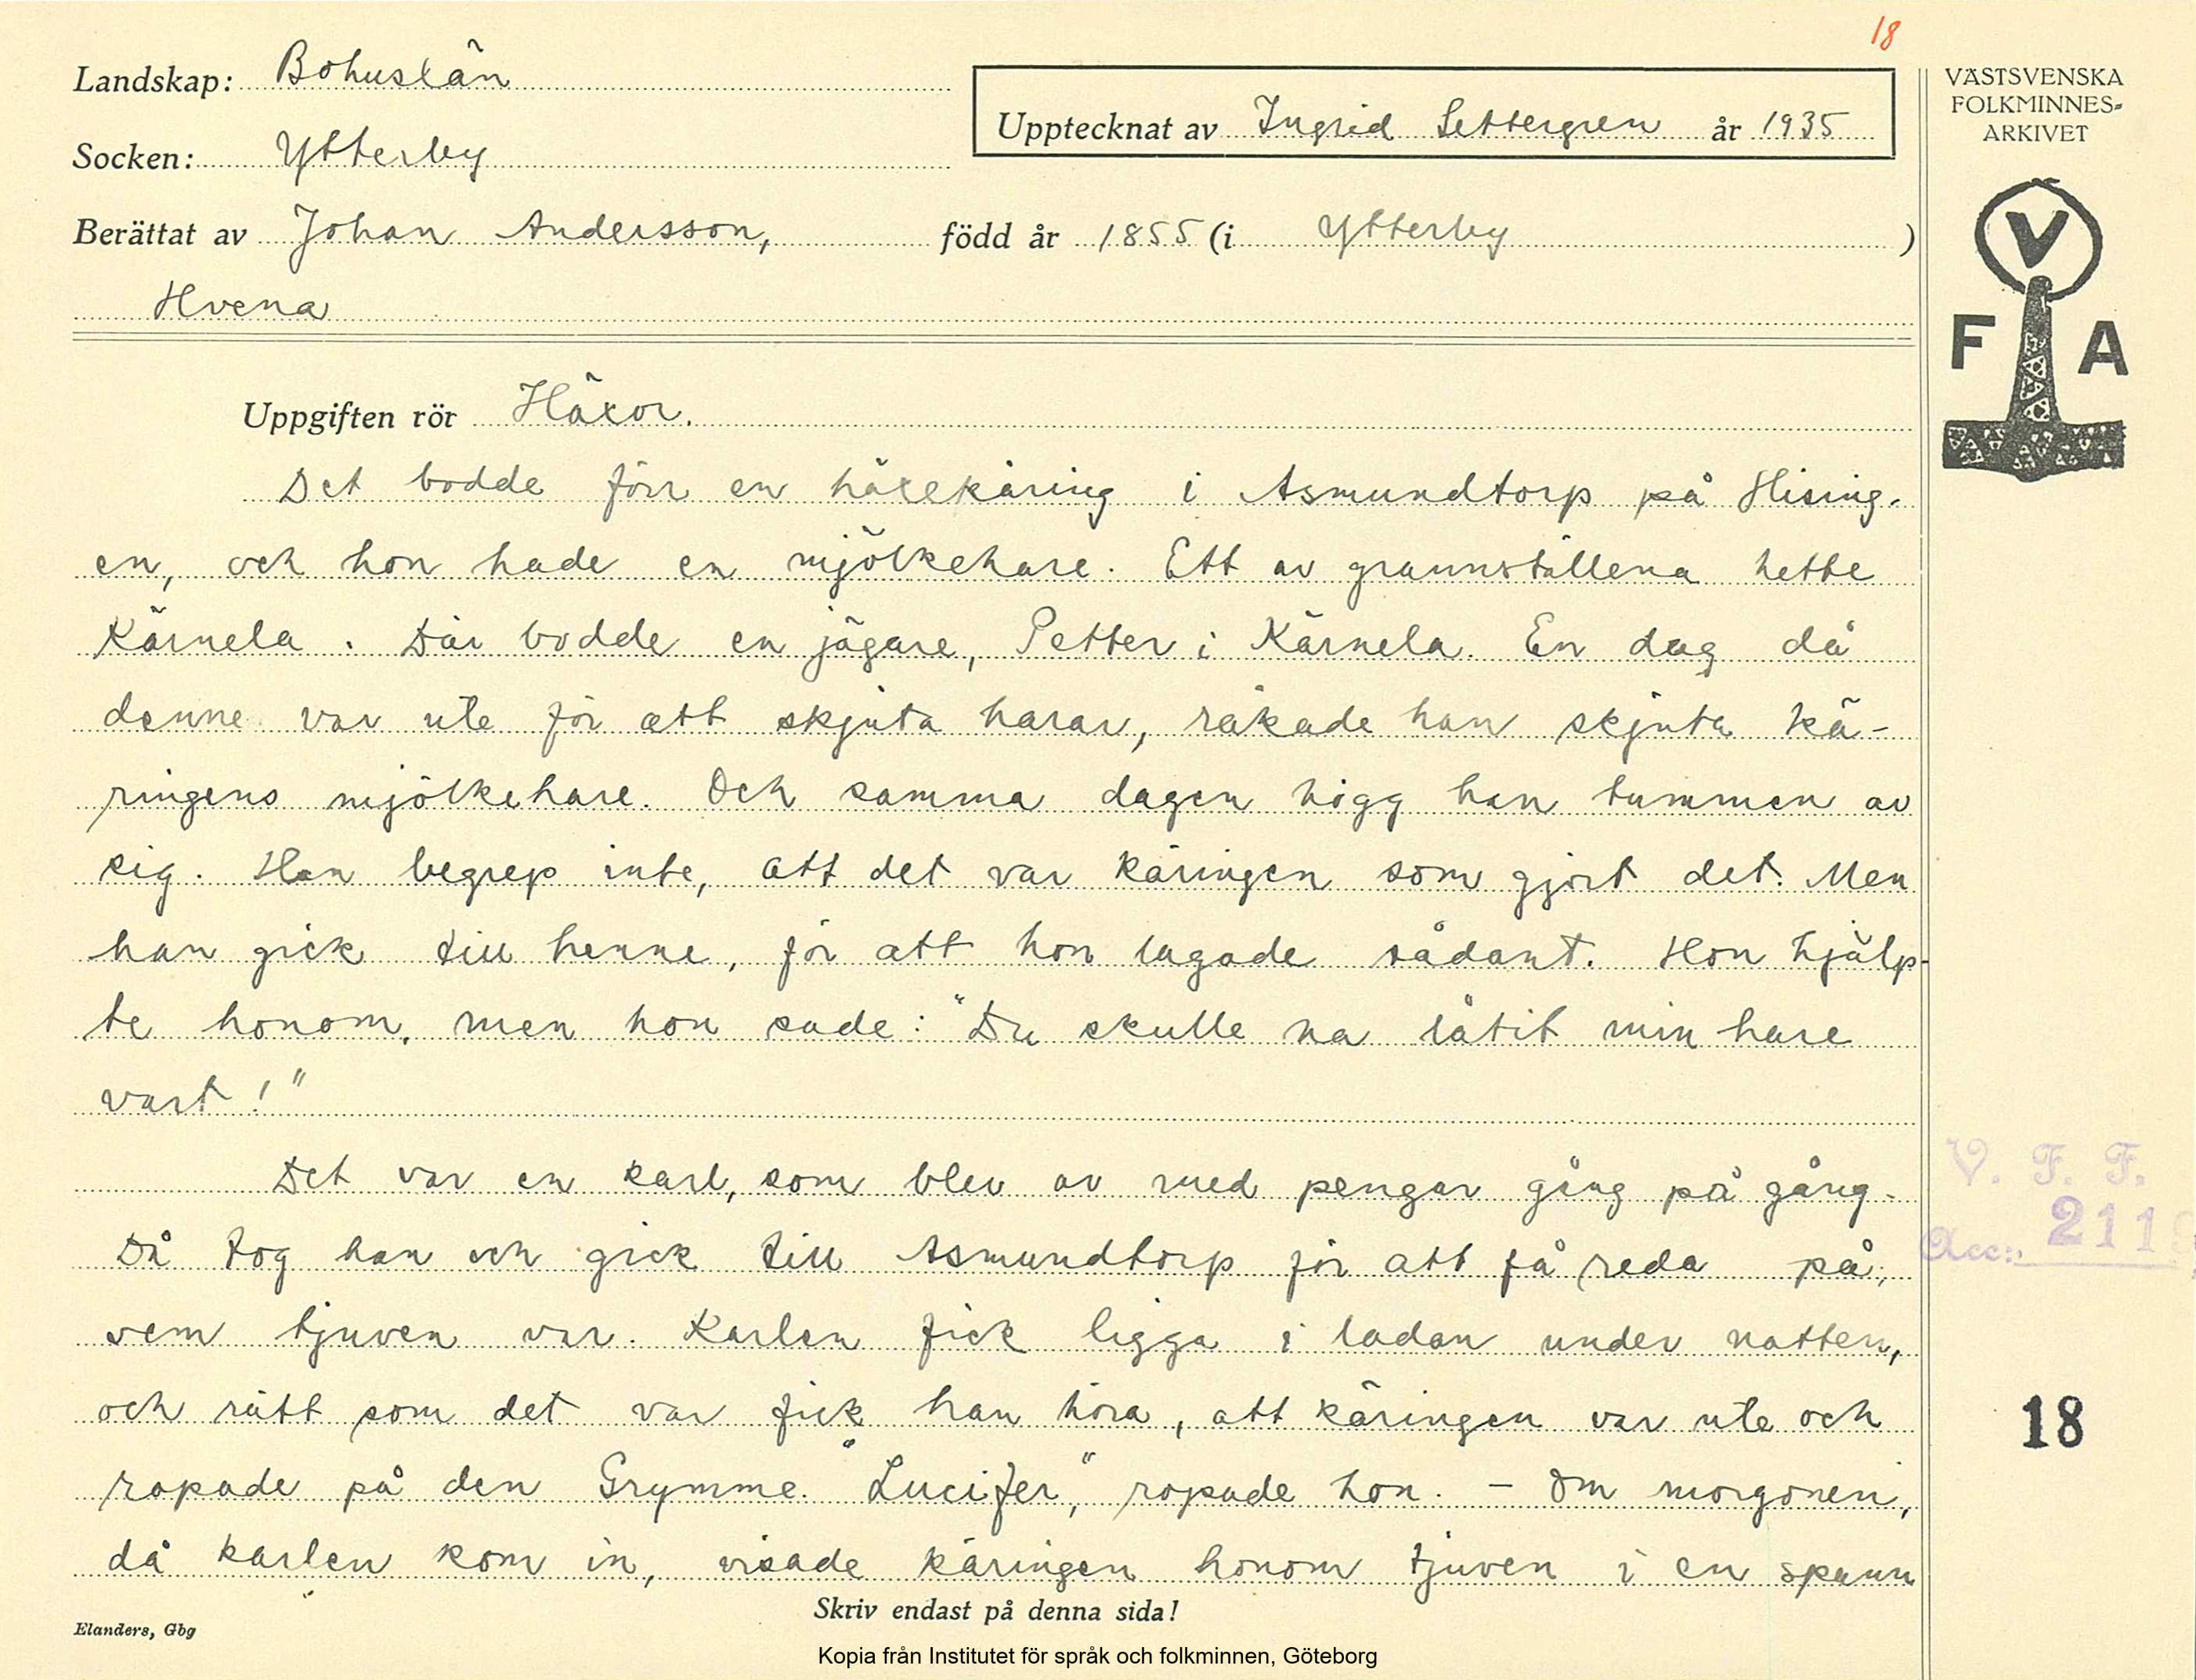 18
Landskap: Bohuslän
Socken: Ytterby
Upptecknat av Ingrid Settergren år 1935
Berättat av Johan Andersson, född år 1855 (i Ytterby )
Hvena
VÄSTSVENSKA
FOLKMINNES-
ARKIVET
V
F A
Uppgiften rör Häxor.
Det bodde förr en häxekäring i Asmundtorp på Hising-
en, och hon hade en mjölkehare. Ett av grannställena hette
Kärnela. Där bodde en jägare, Petter i Kärnela. En dag då
denne var ute för att skjuta harar, råkade han skjuta kä-
ringens mjölkehare. Och samma dagen högg han tummen av
sig. Han begrep inte, att det var käringen som gjort det. Men
han gick till henne, för att hon lagade sådant. Hon hjälp-
te honom, men hon sade: "Du skulle ha låtit min hare
vart!"
Det var en karl, som blev av med pengar gång på gång.
Då tog han och gick till Asmundtorp för att få reda på,
vem tjuven var. Karlen fick ligga i ladan under natten,
och rätt som det var fick han höra, att käringen var ute och
ropade på den Grymme. "Lucifer," ropade hon. – Om morgonen,
då karlen kom in, visade käringen honom tjuven i en spann
V. F. F.
Acc:
18
Skriv endast på denna sida!
Elanders, Gbg
Kopia från Institutet för språk och folkminnen, Göteborg